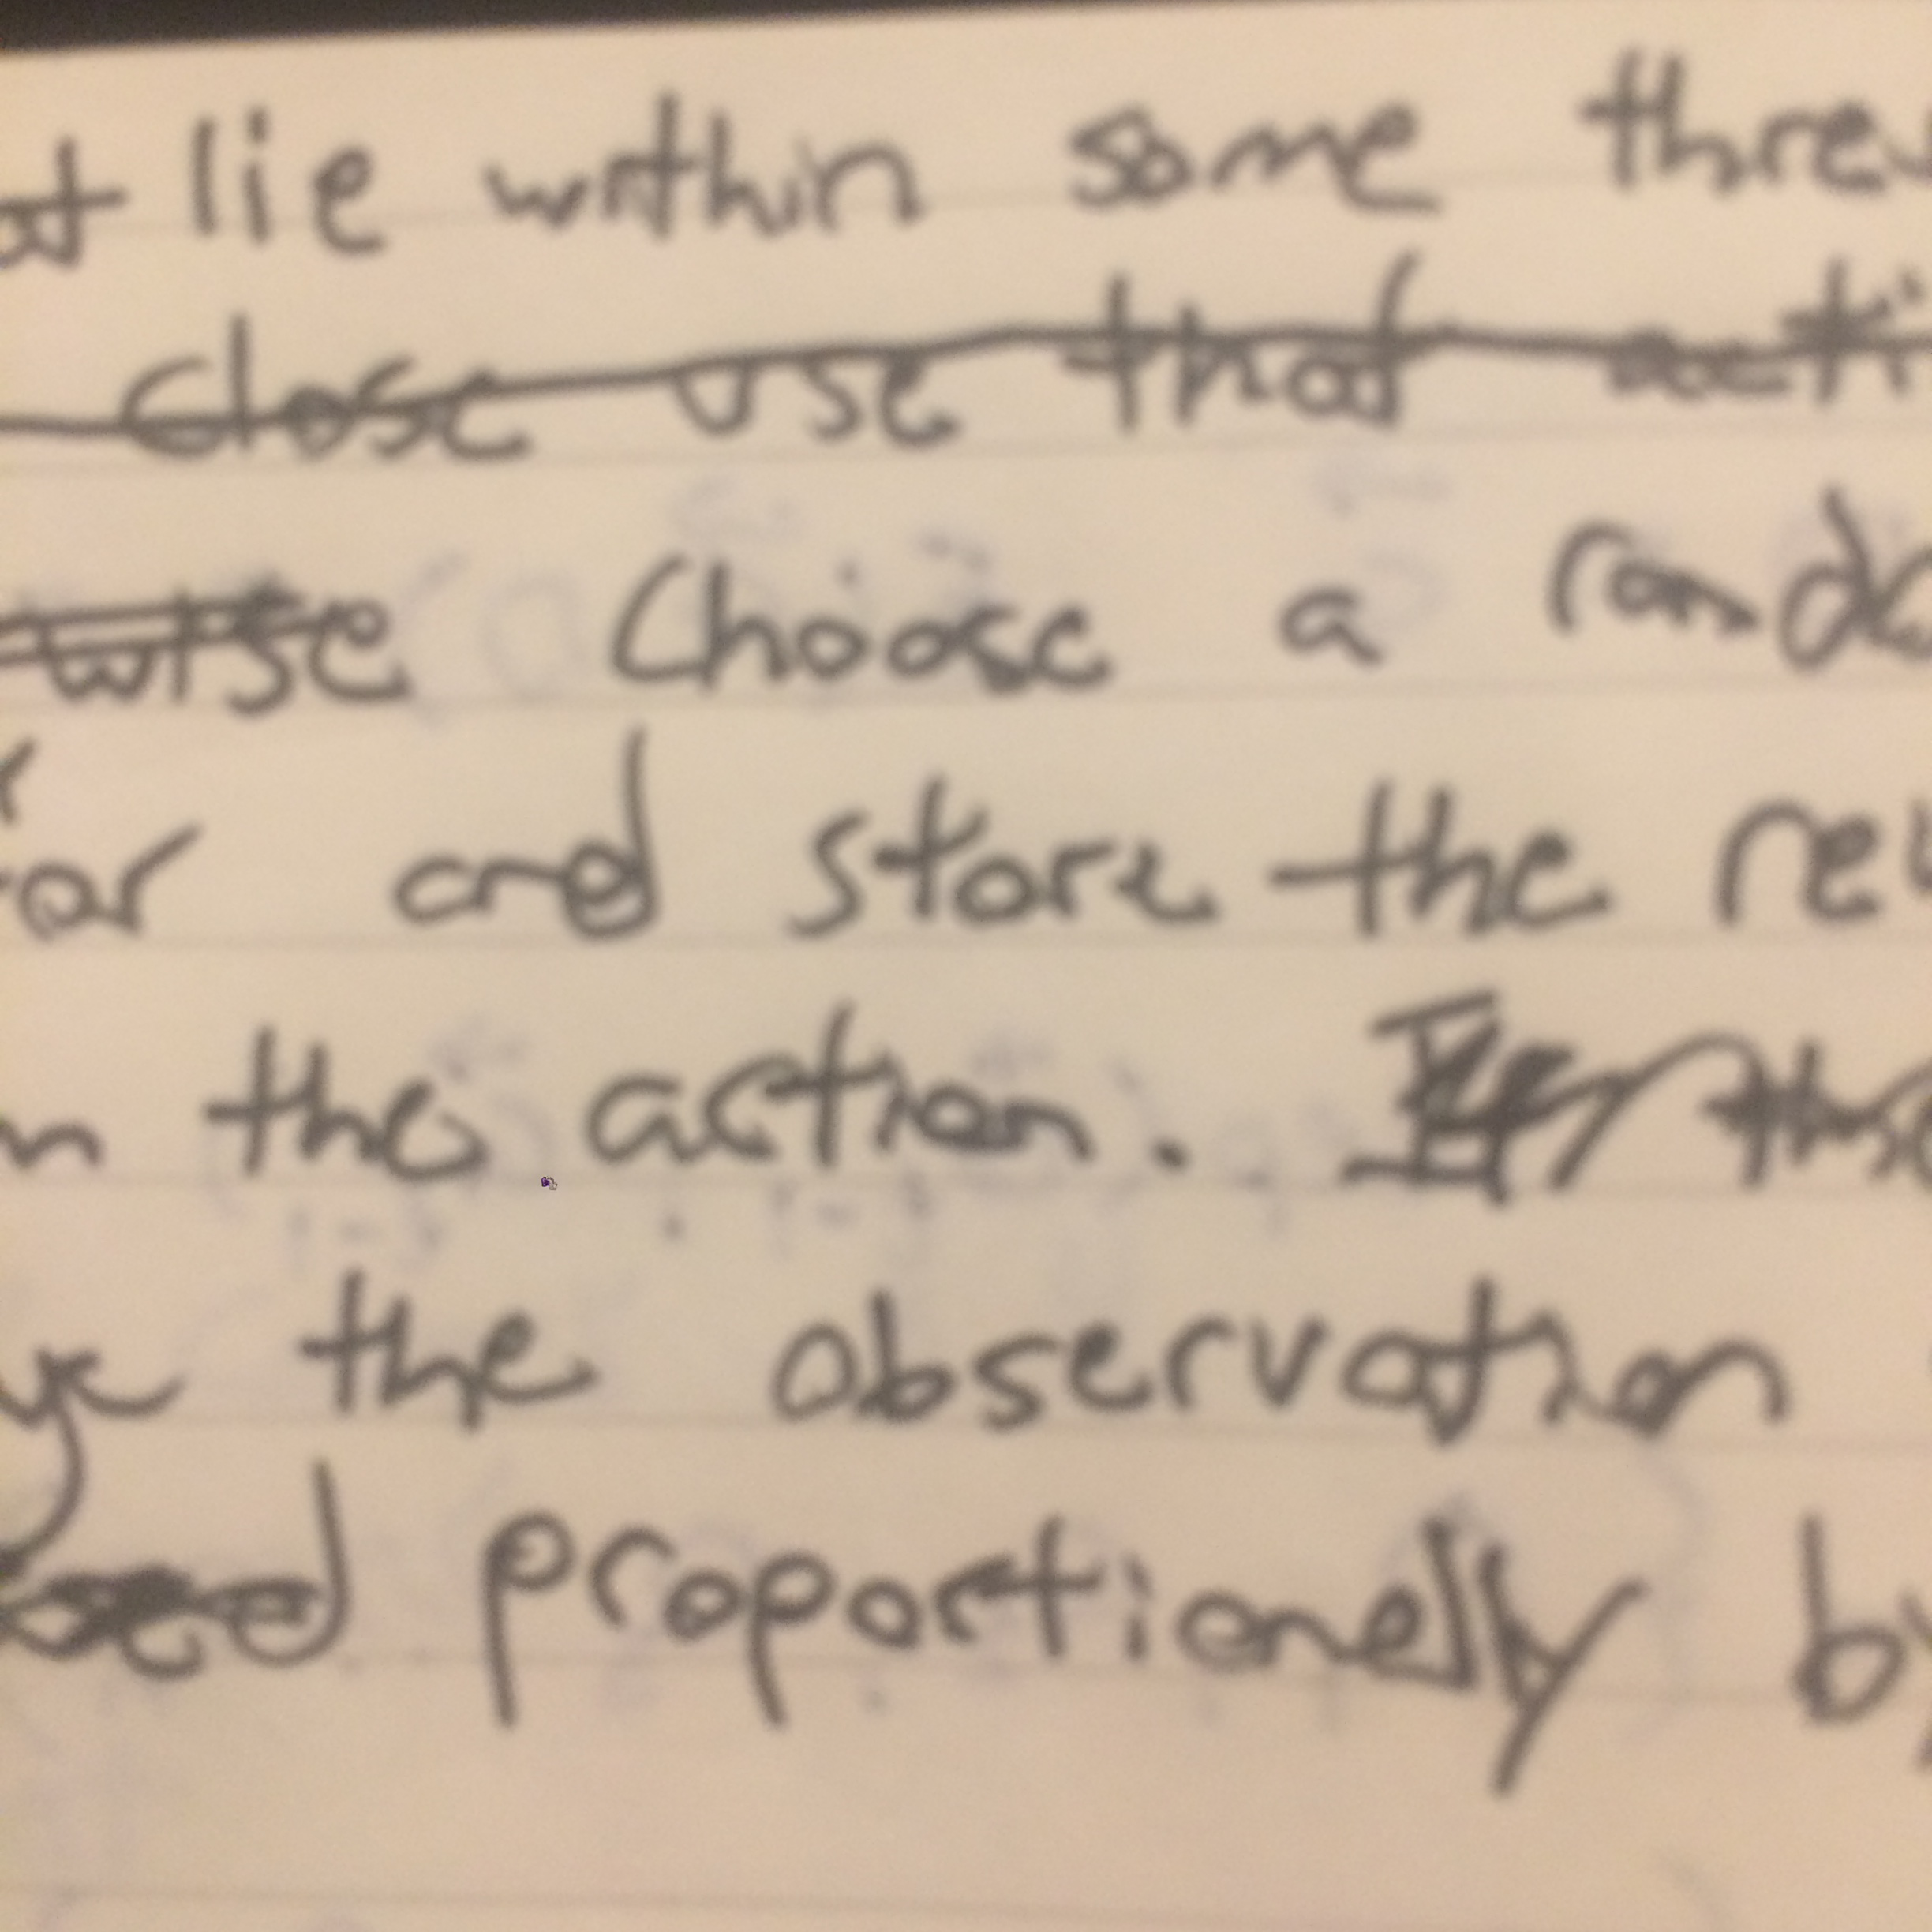 lie within some
close use that
wise Choose a
and store the
the action.
the observation
proportionelly by